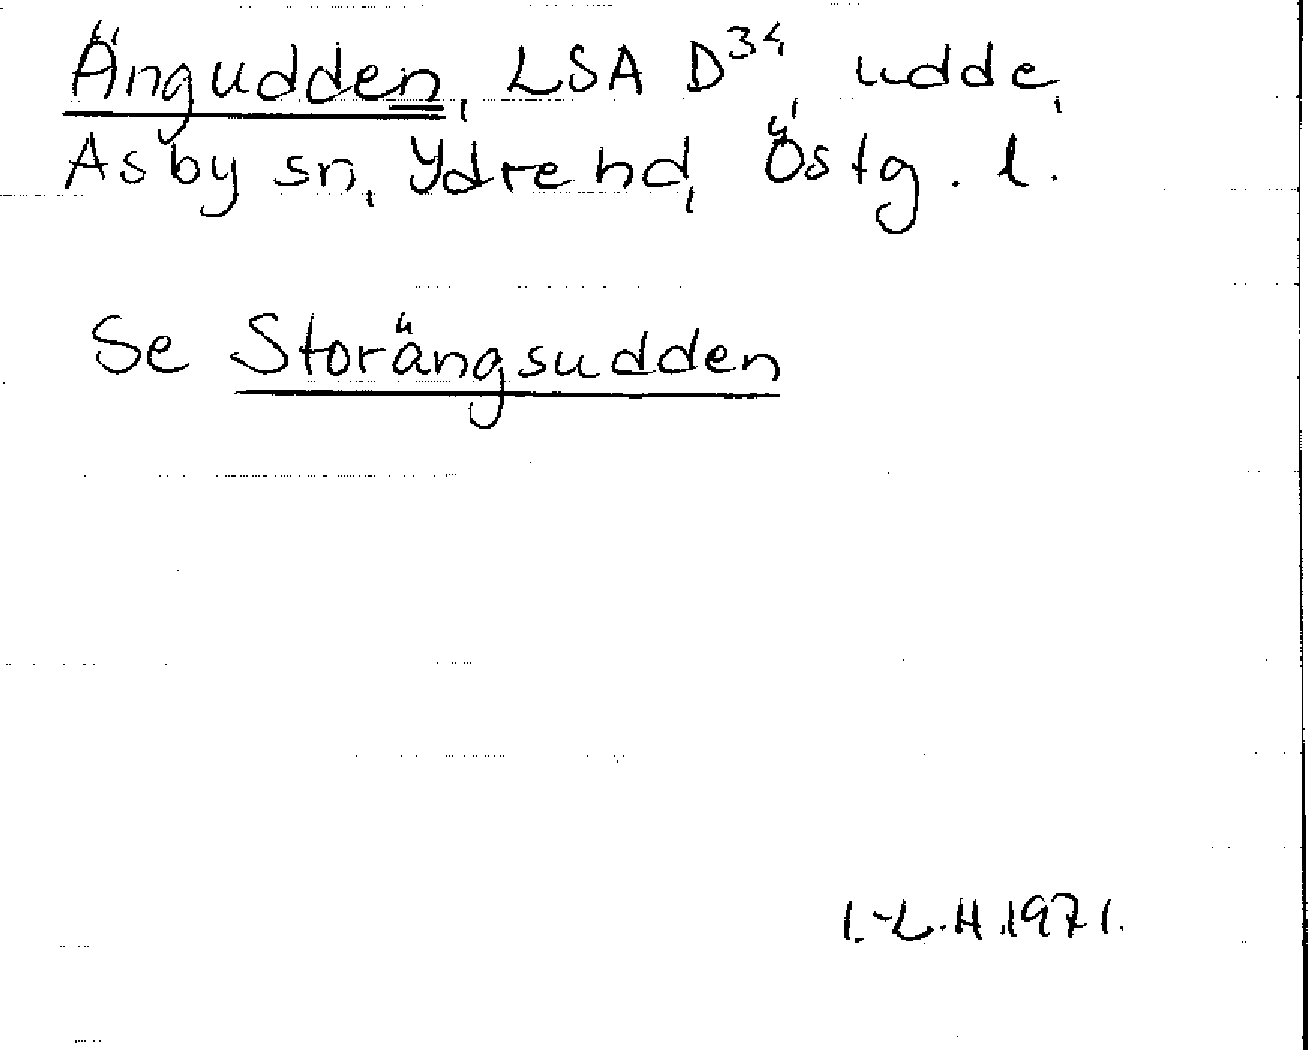 Ängudden, LSA D³⁴, udde,
Asby sn, Ydre hd, Östg. l.
Se Storängsudden
I.-L.H.1971.